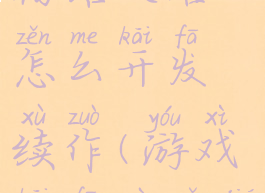 zěn me kāi fā
怎么开发
xù zuò yóu xì
续作(游戏